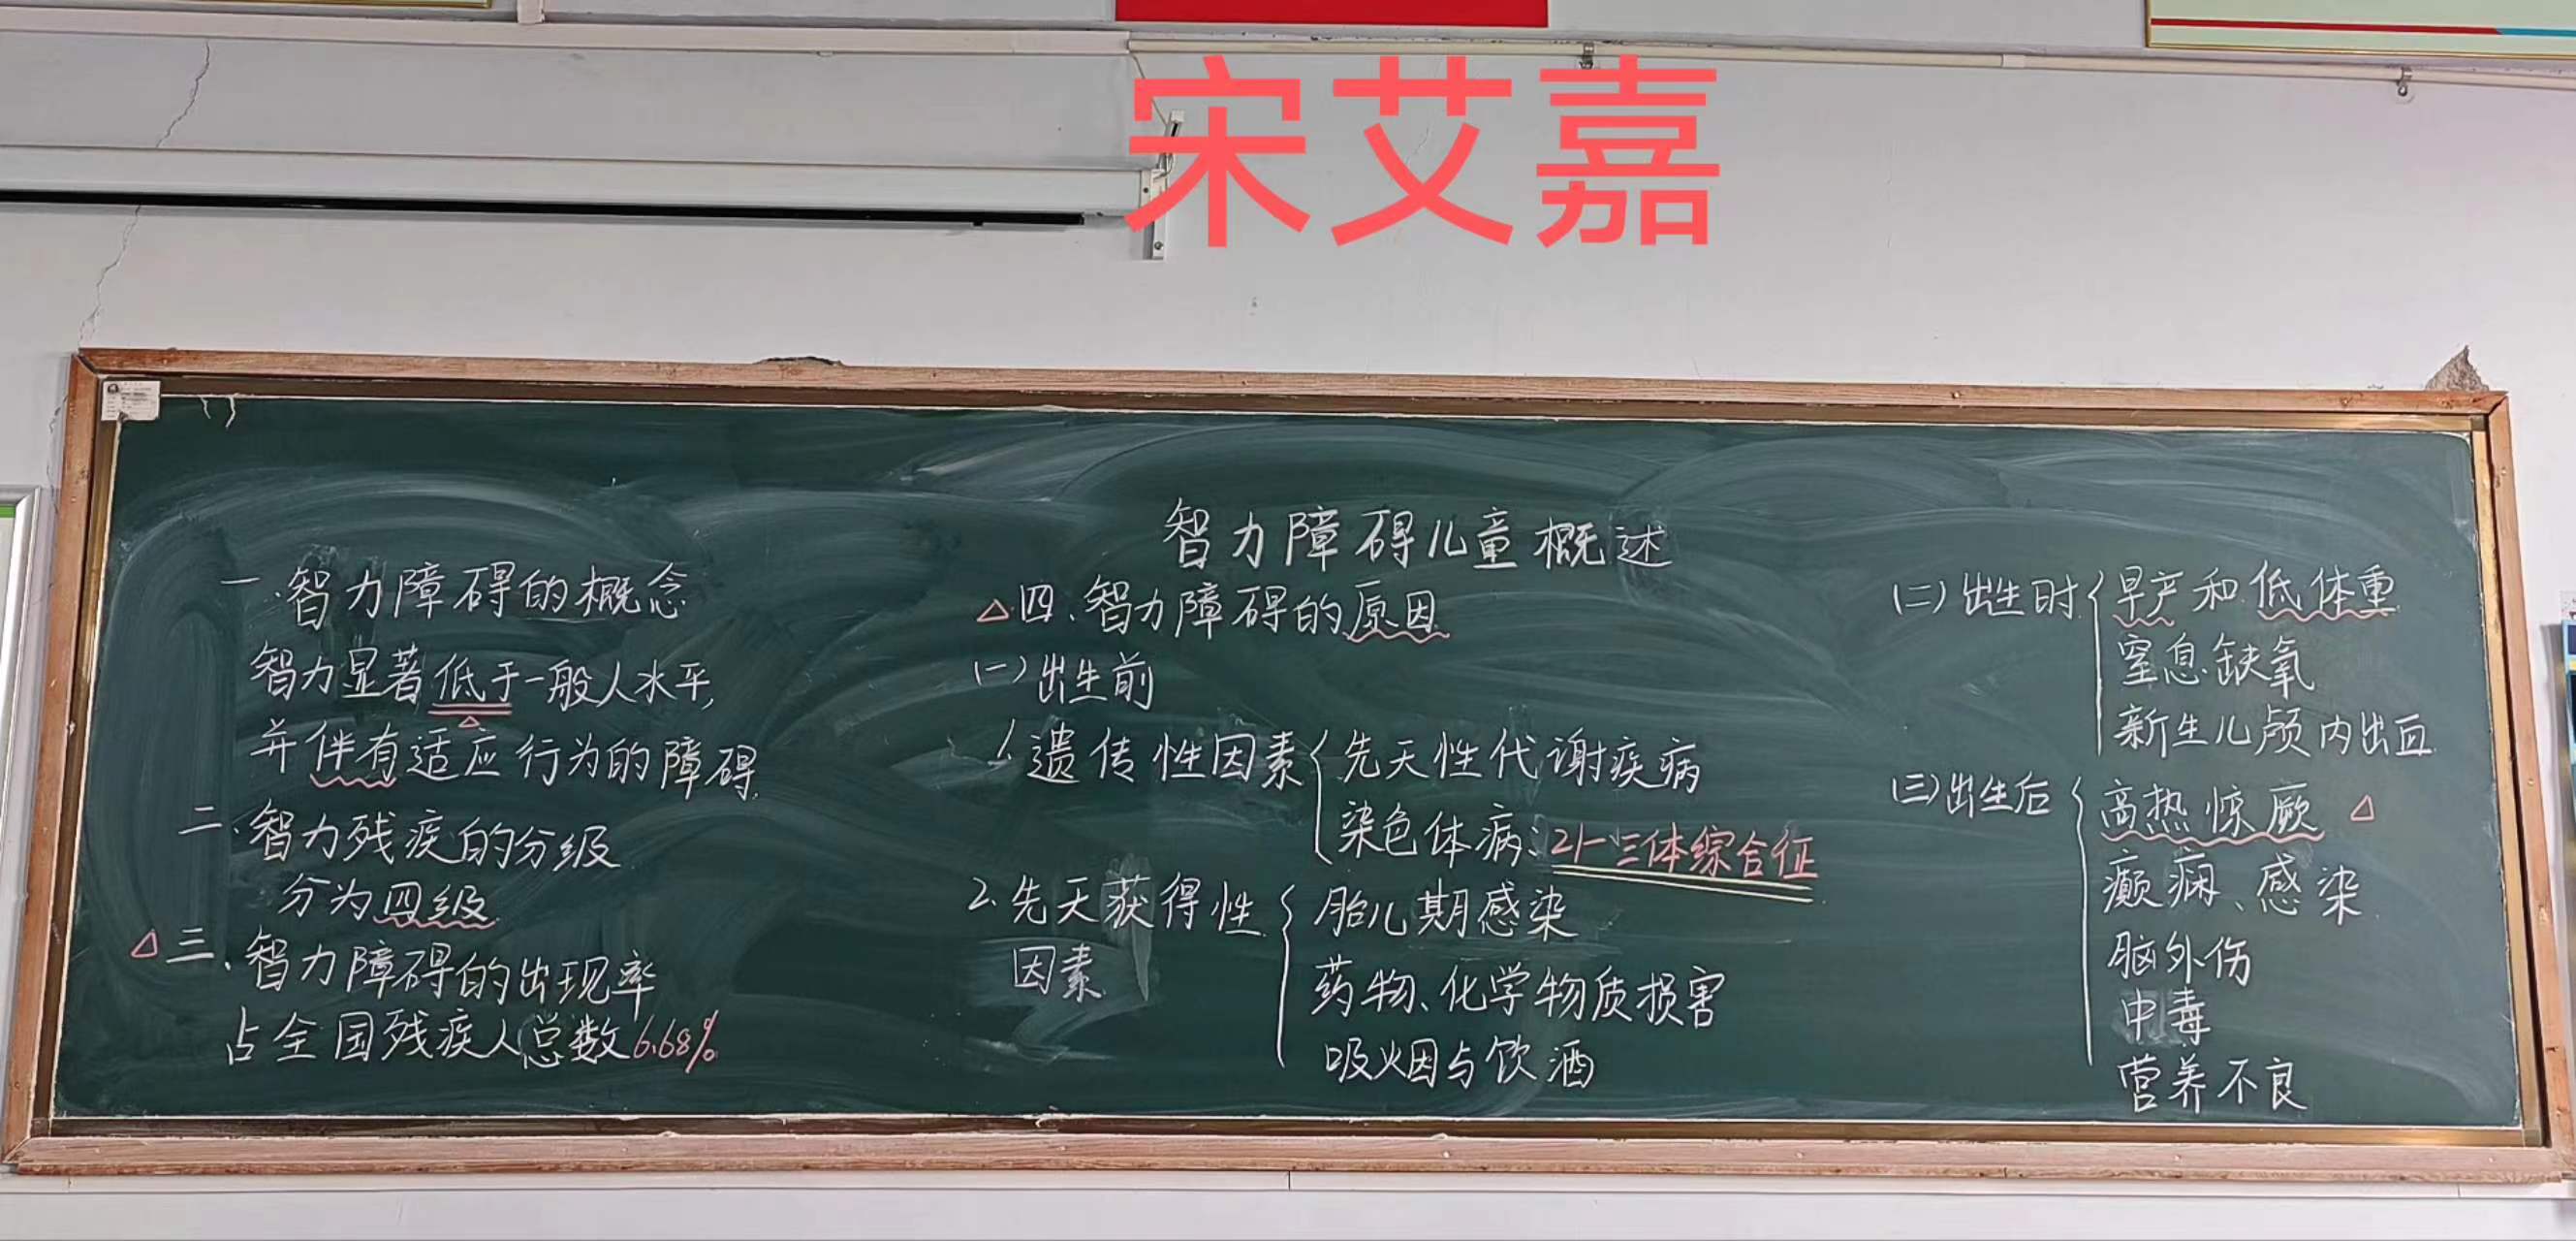 宋艾嘉
智力障碍儿童概述
一.智力障碍的概念
智力显著低于一般人水平,
并伴有适应行为的障碍.
二.智力残疾的分级
分为四级.
△三.智力障碍的出现率
占全国残疾人总数6.68%.
△四.智力障碍的原因
(一)出生前
1.遗传性因素{先天性代谢疾病
染色体病:21-三体综合征
2.先天获得性{胎儿期感染
因素
药物、化学物质损害
吸烟与饮酒
(二)出生时{早产和低体重
窒息缺氧
新生儿颅内出血
(三)出生后{高热惊厥 △
癫痫、感染.
脑外伤
中毒
营养不良